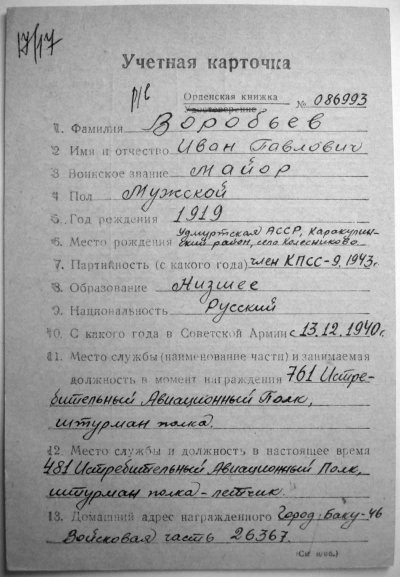 17/17
Учетная карточка
р/с
Орденская книжка
Удостоверение № 086993
1. Фамилия Воробьев
2. Имя и отчество Иван Павлович
3. Воинское звание майор
4. Пол Мужской
5. Год рождения 1919
Удмуртская АССР, Каракулин-
6. Место рождения ский район, село Колесниково
7. Партийность (с какого года) член КПСС-9.1943г.
8. Образование Низшее
9. Национальность Русский
10. С какого года в Советской Армии с 13.12.1940г.
11. Место службы (наименование части) и занимаемая
должность в момент награждения 761 Истре-
бительный Авиационный Полк,
штурман полка.
12. Место службы и должность в настоящее время
481 Истребительный Авиационный Полк,
штурман полка-летчик.
13. Домашний адрес награжденного Город: Баку-46
Войсковая часть 26367.
(См. н/об.)